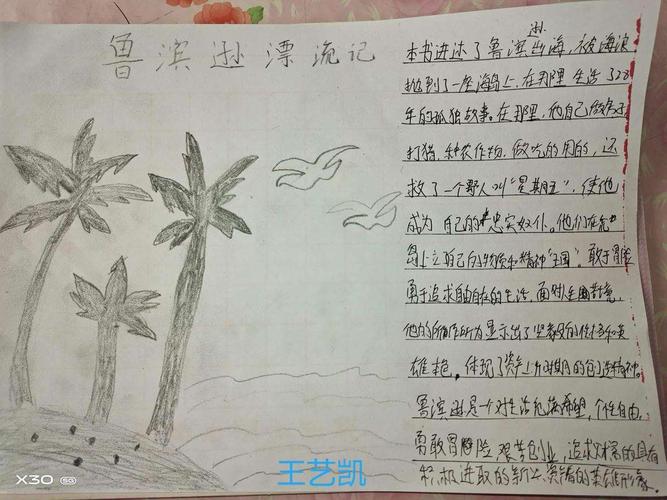 鲁滨逊漂流记
本书讲述了鲁滨逊出海,被海浪
抛到了一座海岛上,在那里生活了28
年的孤独故事。在那里,他自己做房子
打猎,种农作物,做吃的用的,还
救了一个野人叫"星期五",使他
成为自己的忠实奴仆。他们在荒
岛上立自己的物质和精神"王国"。敢于冒险
勇于追求自由自在的生活,面对困境,
他的所作所为显示出了坚毅的性格和英
雄本色,体现了资产上升时期的创造精神。
鲁滨逊是一个对生活充满希望,个性自由,
勇敢冒险,艰苦创业,追求财富的具有
积极进取的新兴资产的英雄形象。
王艺凯
X30 5G